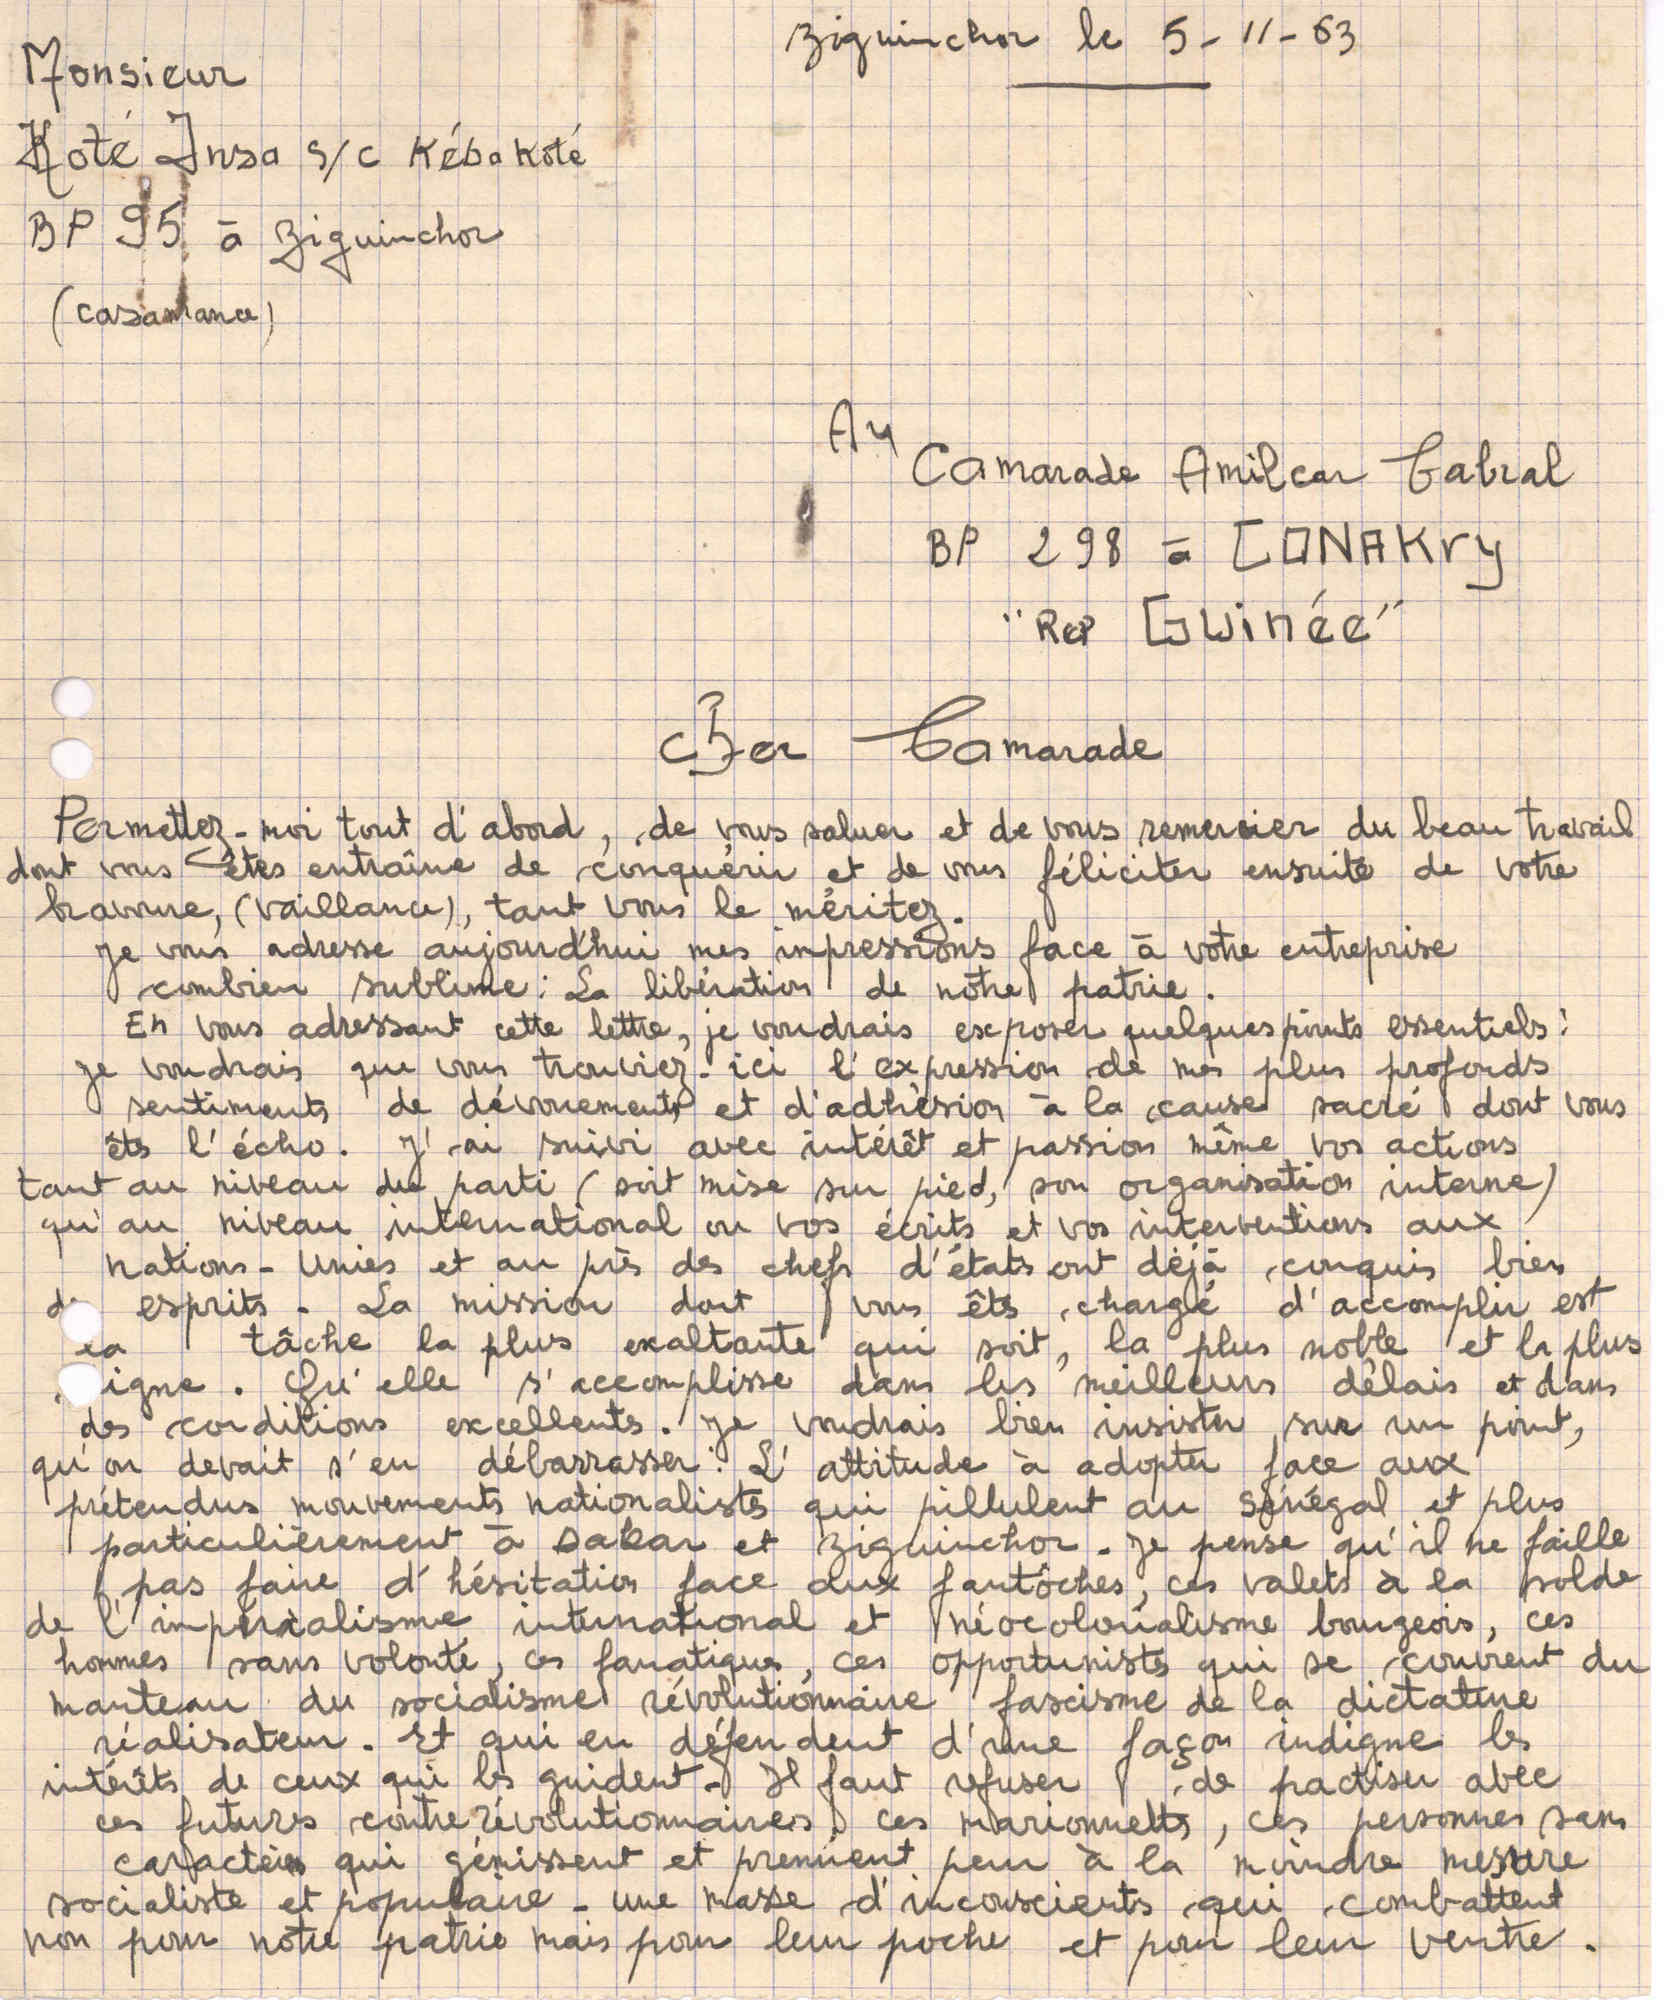 Ziguinchor le 5-11-63
Monsieur
Koté Insa s/c Kéba Koté
BP 95 à Ziguinchor
(casamance)
Au
Camarade Amilcar Cabral
BP 298 à CONAKry
"Rep Guinée"
cher Camarade
Permettez-moi tout d'abord, de vous saluer et de vous remercier du beau travail
dont vous êtes entraîne de conquérir et de vous féliciter ensuite de votre
bravoure, (vaillance), tant vous le méritez.
Je vous adresse aujourd'hui mes impressions face à votre entreprise
combien sublime: La libération de notre patrie.
En vous adressant cette lettre, je voudrais exposer quelques points essentiels:
Je voudrais que vous trouviez-ici l'expression de mes plus profonds
sentiments de dévouements et d'adhésion à la cause sacré dont vous
êts l'écho. J'ai suivi avec intérêt et passion même vos actions
tant au niveau du parti (soit mise sur pied, son organisation interne)
qu'au niveau international ou vos écrits et vos interventions aux
nations-Unies et au près des chefs d'états ont déjà conquis bien
esprits. La mission dont vous êts chargé d'accomplir est
la tâche la plus exaltante qui soit, la plus noble et la plus
igne. Qu'elle s'accomplisse dans les meilleurs délais et dans
des conditions excellents. Je voudrais bien insister sur un point,
qu'on devait s'en débarrasser: L'attitude à adopter face aux
prétendus mouvements nationalists qui pillulent au Sénégal et plus
particulièrement à Dakar et Ziguinchor. Je pense qu'il ne faille
pas faire d'hésitation face aux fantôches, ces valets à la solde
de l'impérialisme international et néocolonialisme bourgeois, ces
hommes sans volonté, ces fanatiques, ces opportunists qui se couvrent du
manteau du socialisme révolutionnaire fascisme de la dictature
réalisateur. Et qui en défendent d'une façon indigne les
intérêts de ceux qui les guident. Il faut refuser de pactiser avec
ces futurs contre révolutionnaires, ces marionnetts, ces personnes sans
caractères qui gémissent et prennient peur à la moindre mesure
socialiste et populaire - une masse d'inconscients qui combattent
non pour notre patrie mais pour leur poche et pour leur ventre.